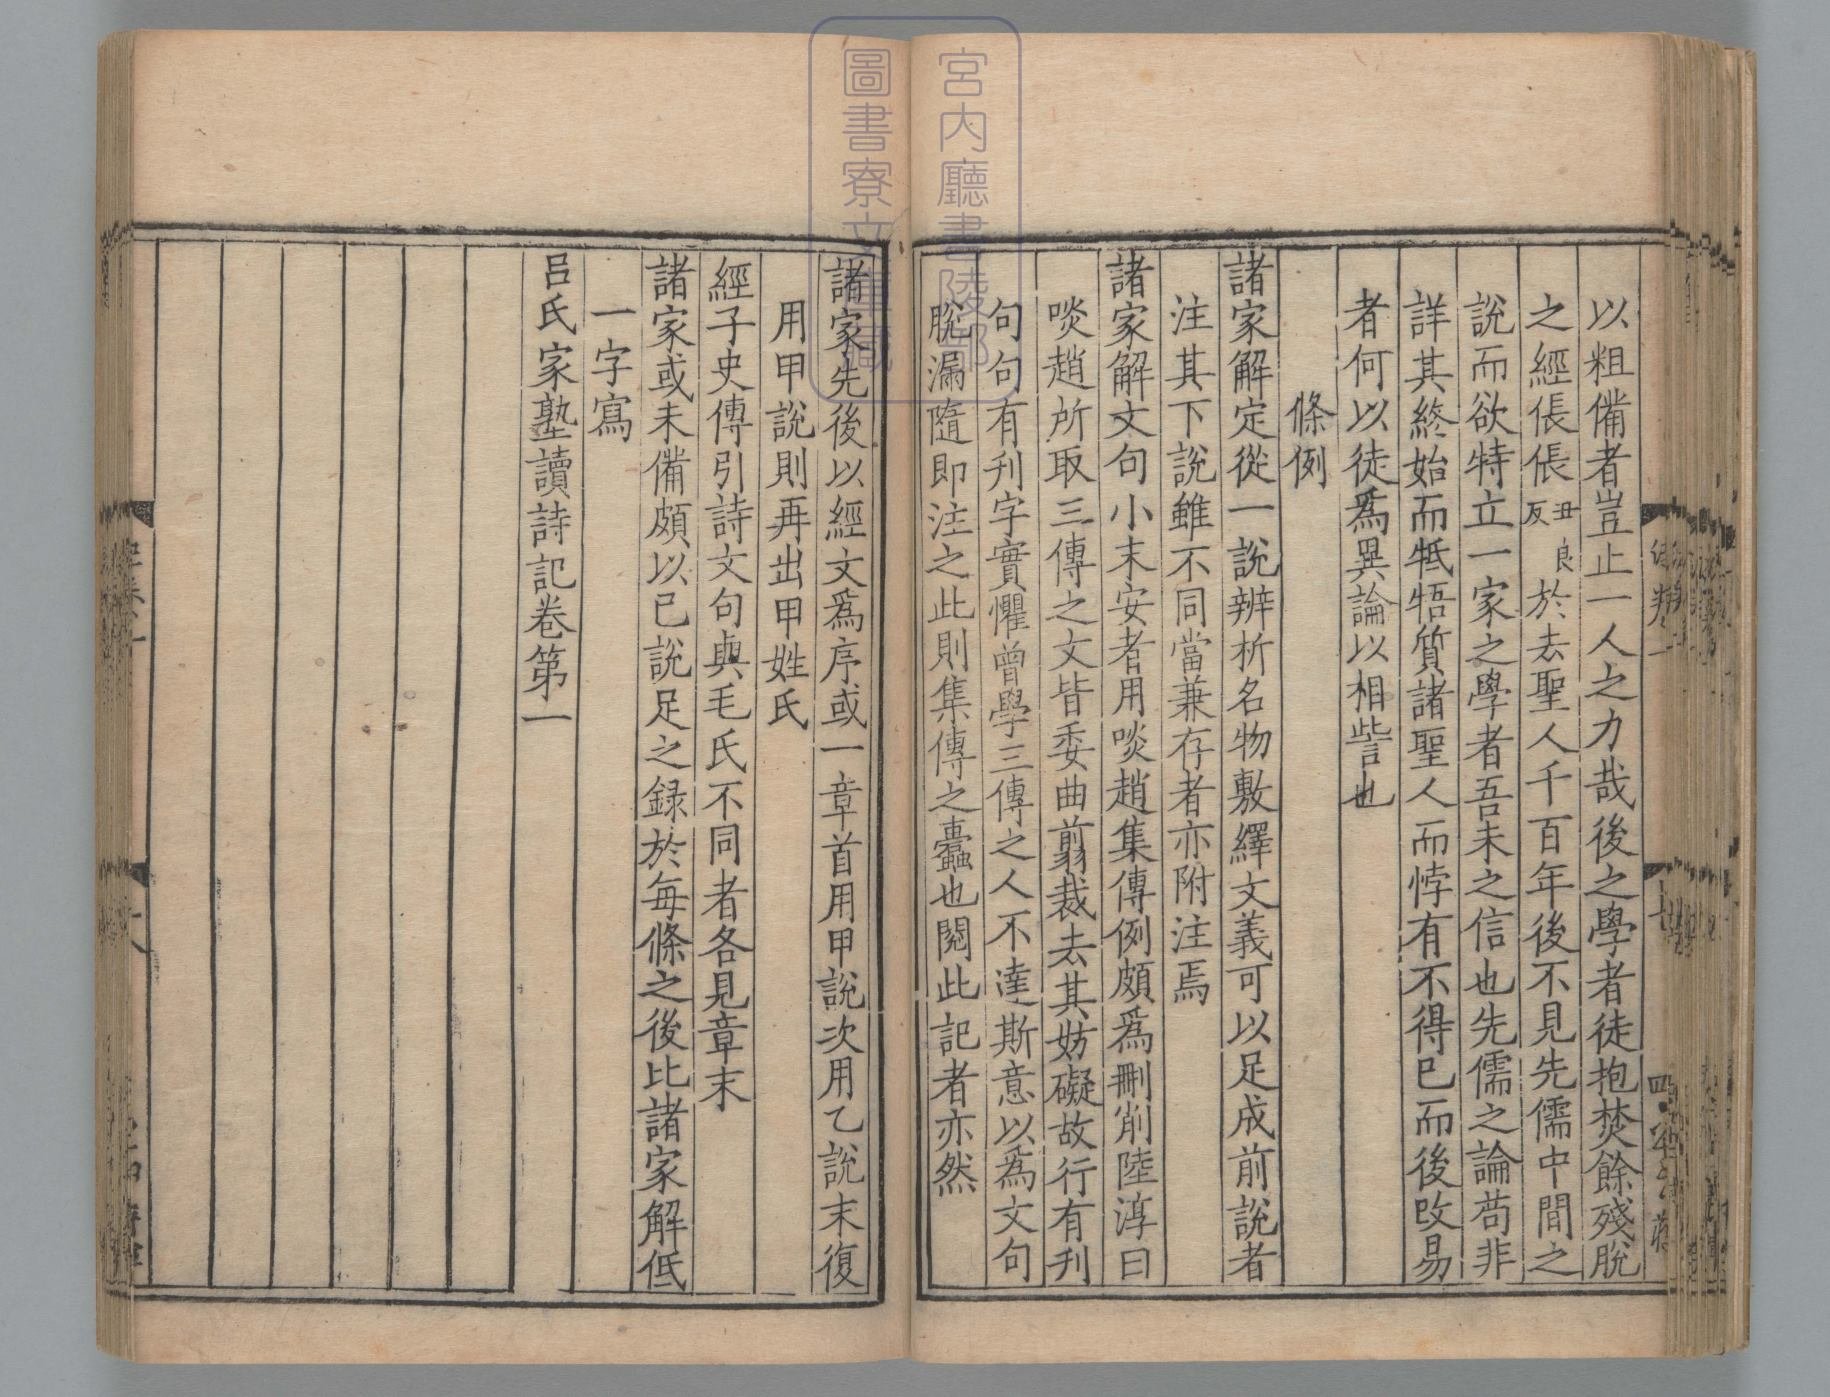 以粗備者豈止一人之力哉後之學者徒抱焚餘殘脫
之經倀倀丑良反於去聖人千百年後不見先儒中間之
說而欲特立一家之學者吾未之信也先儒之論苟非
詳其終始而牴牾質諸聖人而悖有不得已而後改易
者何以徒爲異論以相訾也
條例
諸家解定從一說辨析名物敷繹文義可以足成前說者
注其下說雖不同當兼存者亦附注焉
諸家解文句小未安者用啖趙集傳例頗爲刪削陸淳曰
啖趙所取三傳之文皆委曲翦裁去其妨礙故行有刋
句句有刋字實懼曾學三傳之人不達斯意以爲文句
脫漏隨即注之此則集傳之蠹也閱此記者亦然
諸家先後以經文爲序或一章首用甲說次用乙說末復
用甲說則再出甲姓氏
經子史傳引詩文句與毛氏不同者各見章末
諸家或未備頗以已說足之録於每條之後比諸家解低
一字寫
呂氏家塾讀詩記卷第一
宮内廳書陵部
圖書寮文庫藏